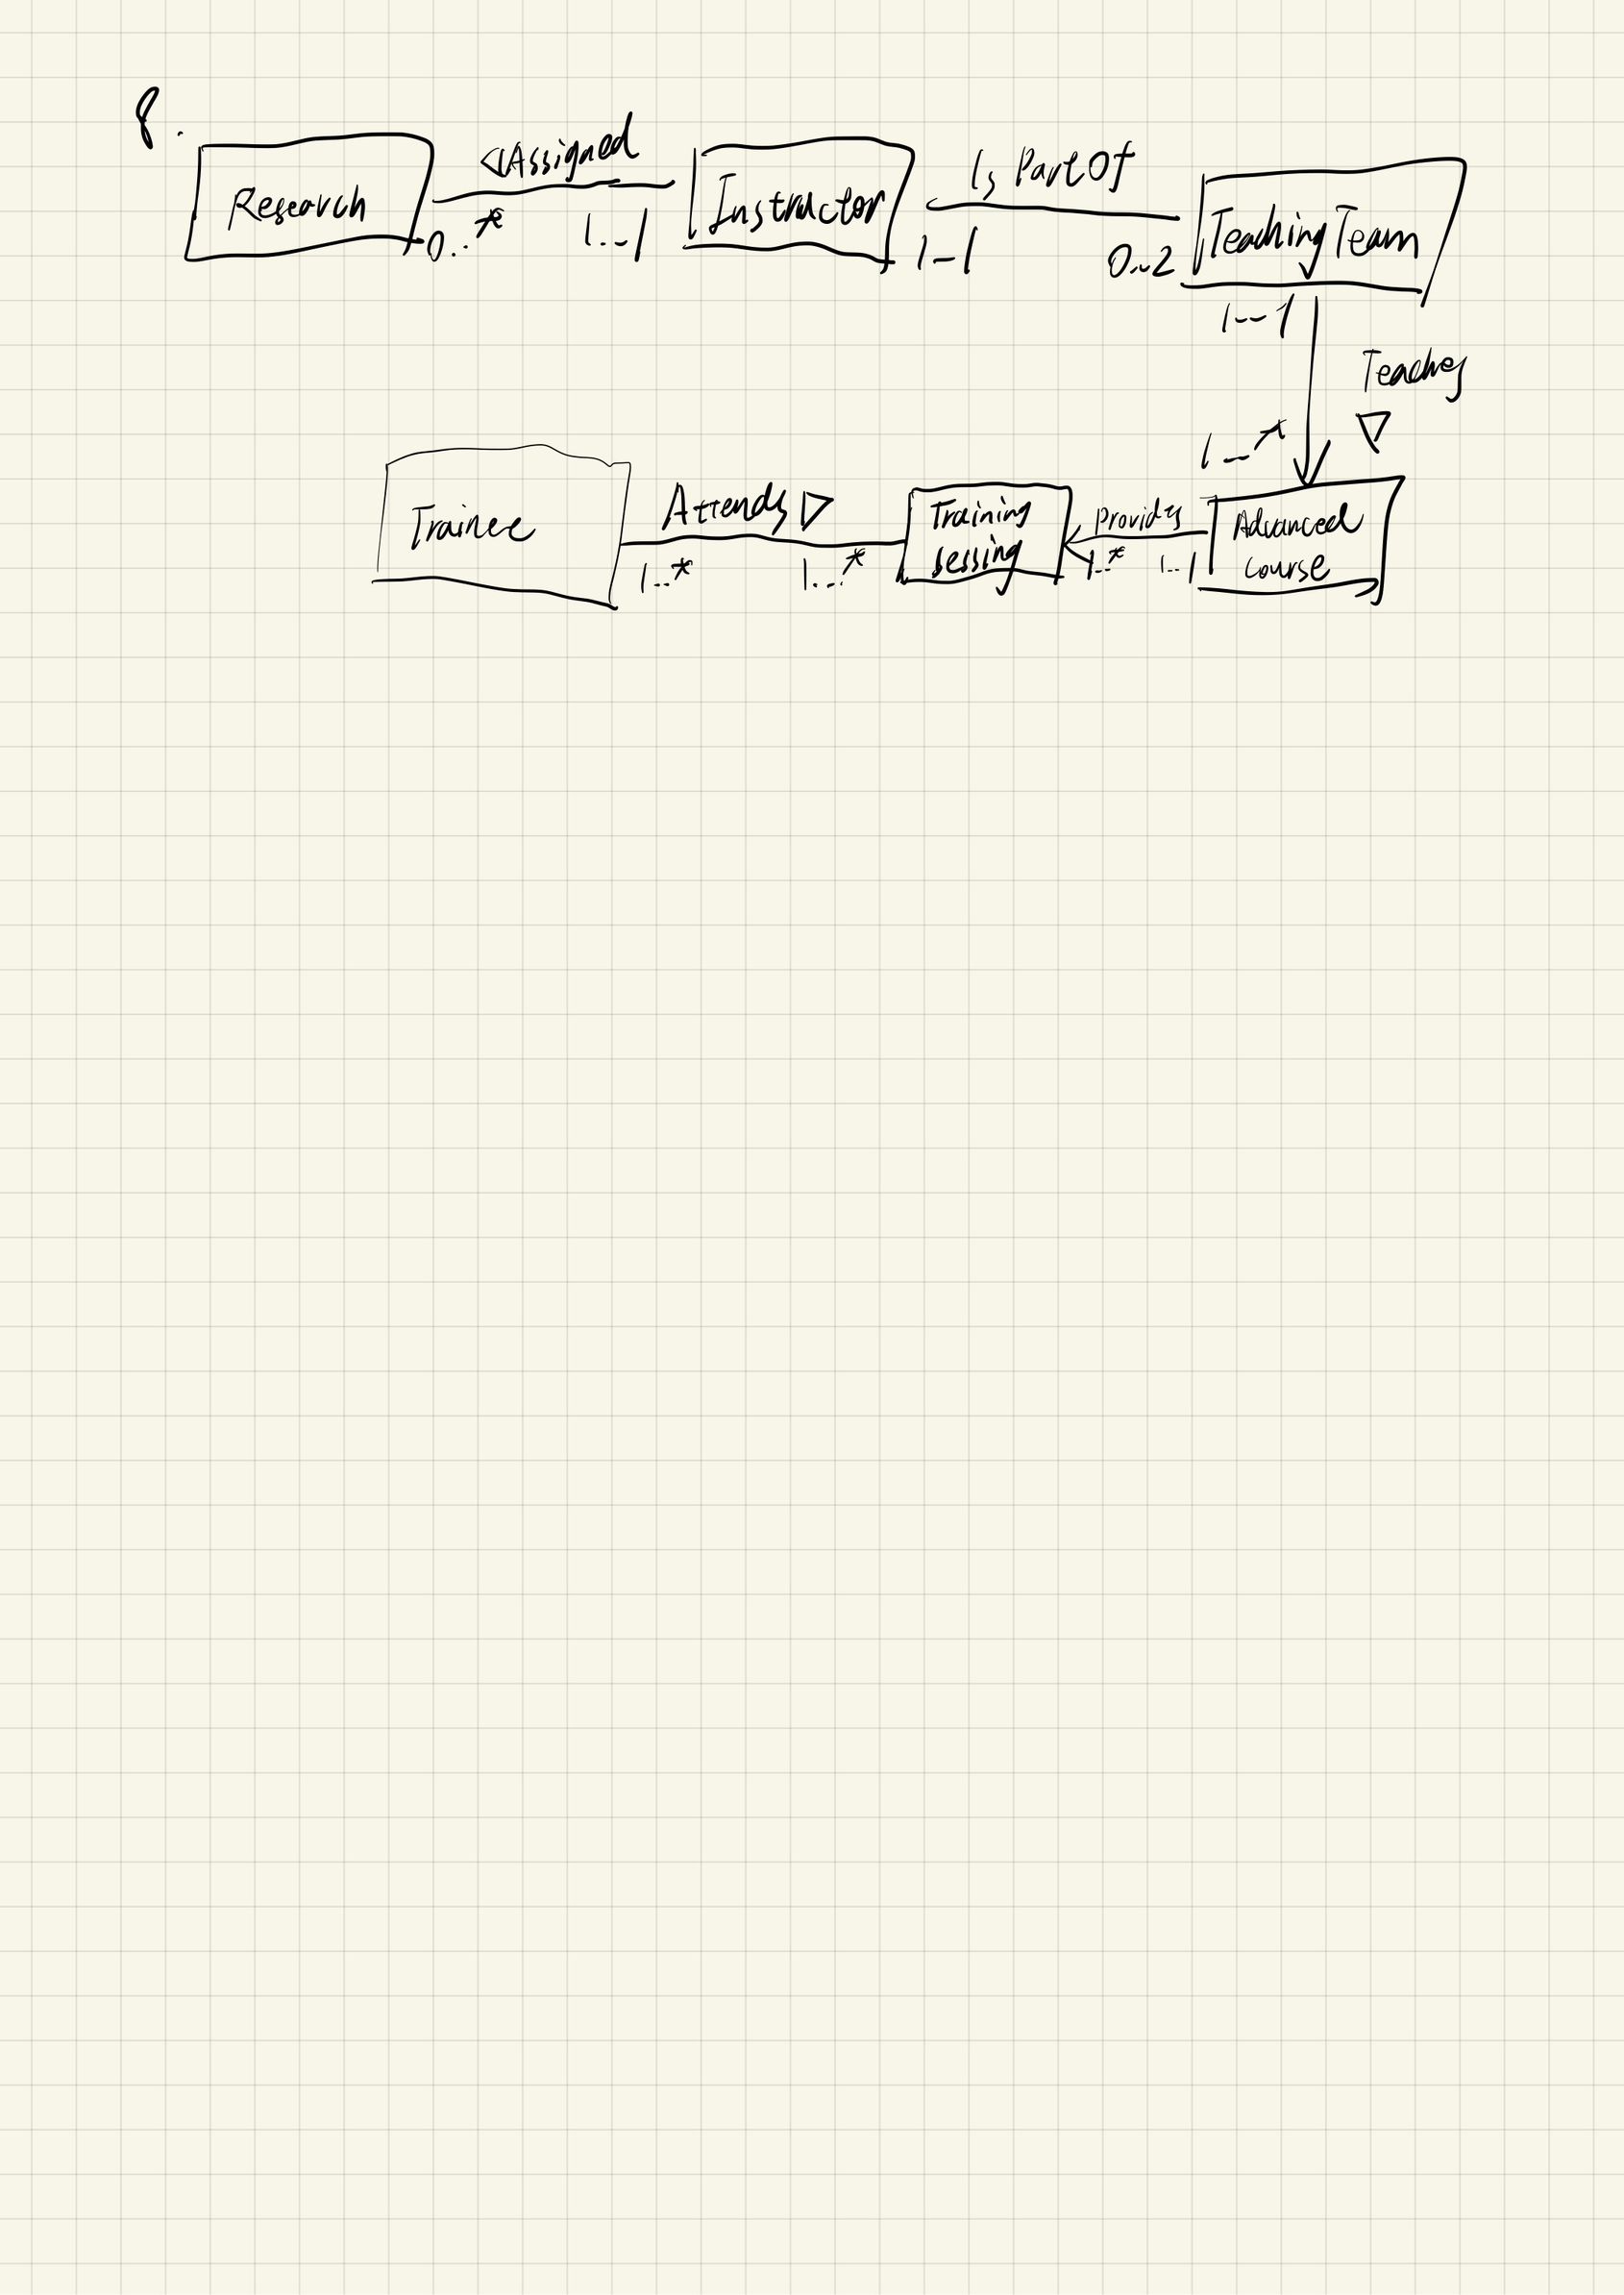 8.
Assigned
Research
0..*
1..1
Instructor
Is Part Of
1..1
0..2
Teaching Team
1..1
Teaches
1..*
Trainee
Attends
1..*
1..*
Training
sessing
Provides
1..*
1..1
Advanced
course